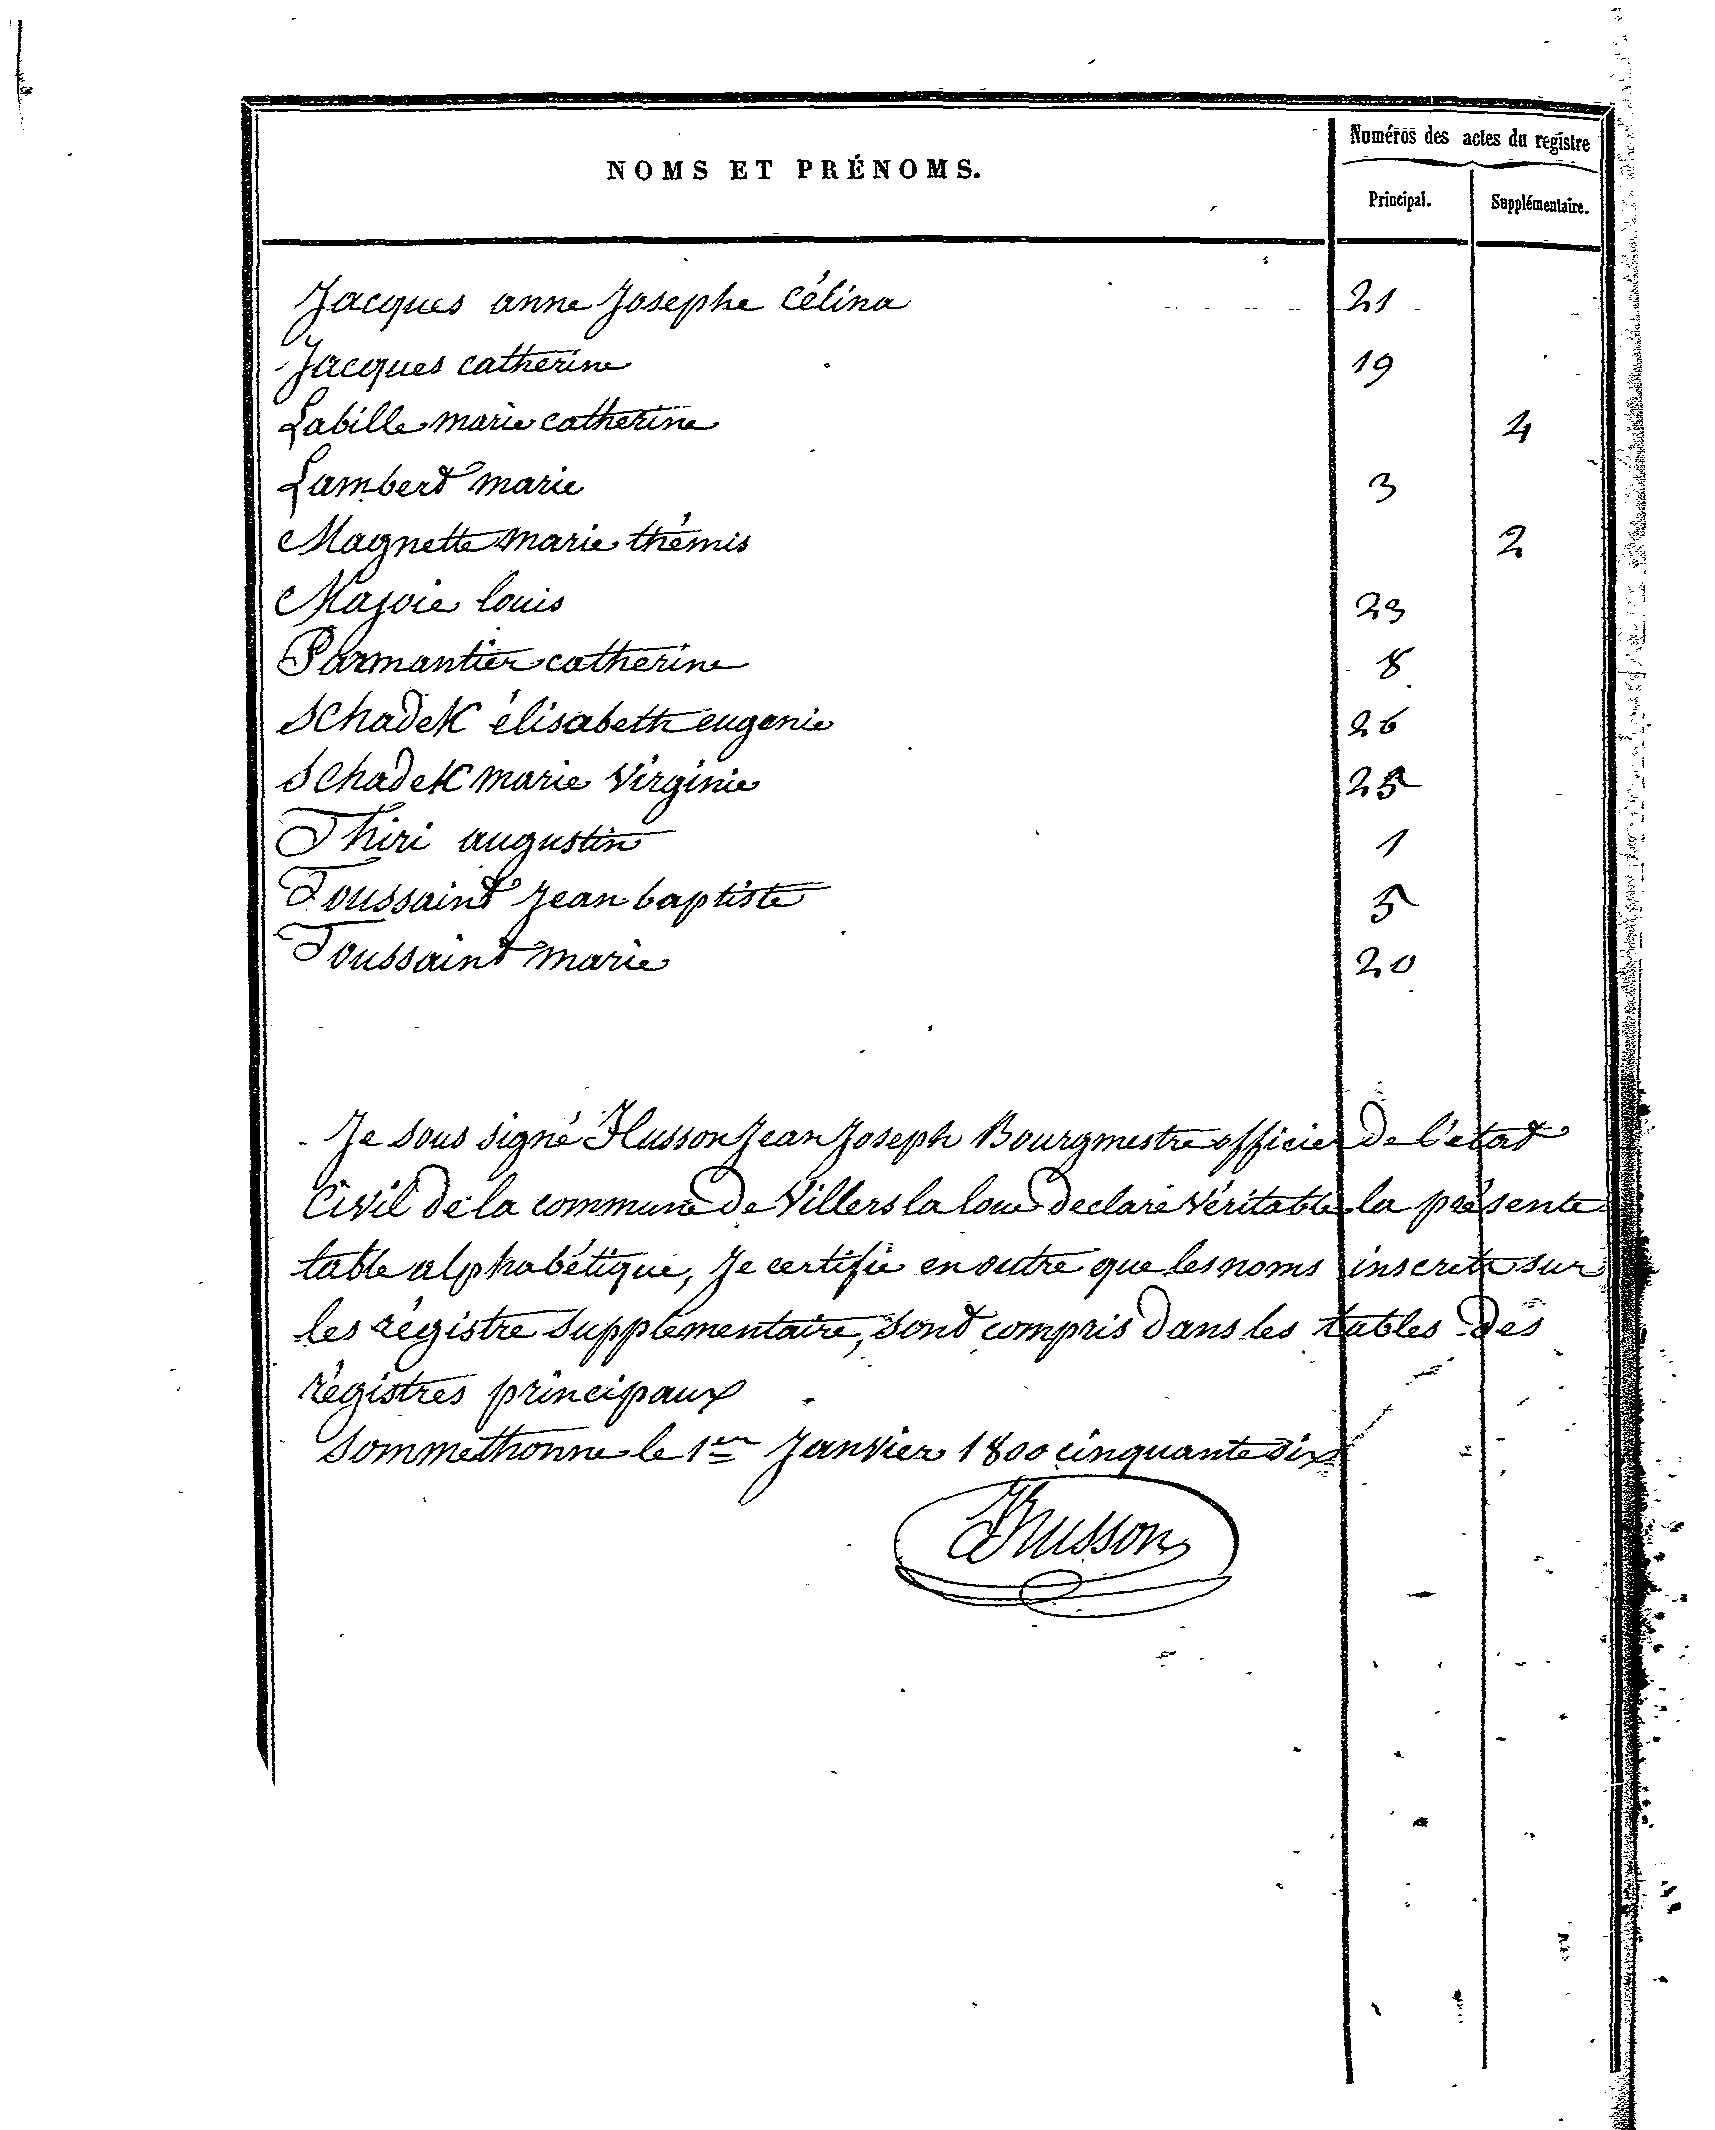 Numéros des actes du registre
NOMS ET PRÉNOMS.
Principal. Supplémentaire.
Jacques anne Josephe Célina 21
Jacques catherine 19
Labille marie catherine 4
Lambert marie 3
Magnette marie thémis 2
Majoie louis 23
Parmantier catherine 8
Schadek élisabeth eugenie 26
Schadek marie Virginie 25
Thiri augustin 1
Toussaint Jean baptiste 5
Toussaint marie 20
Je sous signé Husson Jean Joseph Bourgmestre officier de l'etat
Civil de la commune de Villers la loue declare véritable la présente
table alphabétique, Je certifie en outre que les noms inscrits sur
les régistre supplémentaire, sont compris dans les tables des
régistres principaux
Sommethonne le 1er Janvier 1800 cinquante six
JHusson